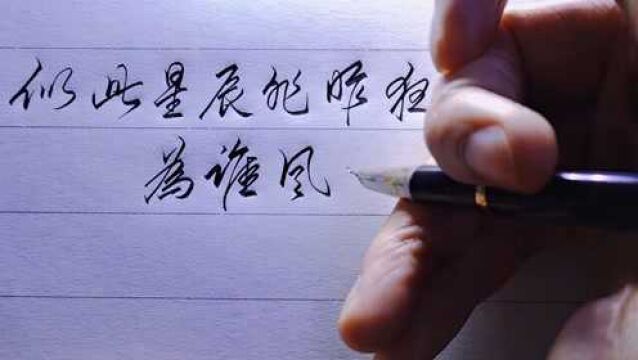 似此星辰非昨夜
為谁风